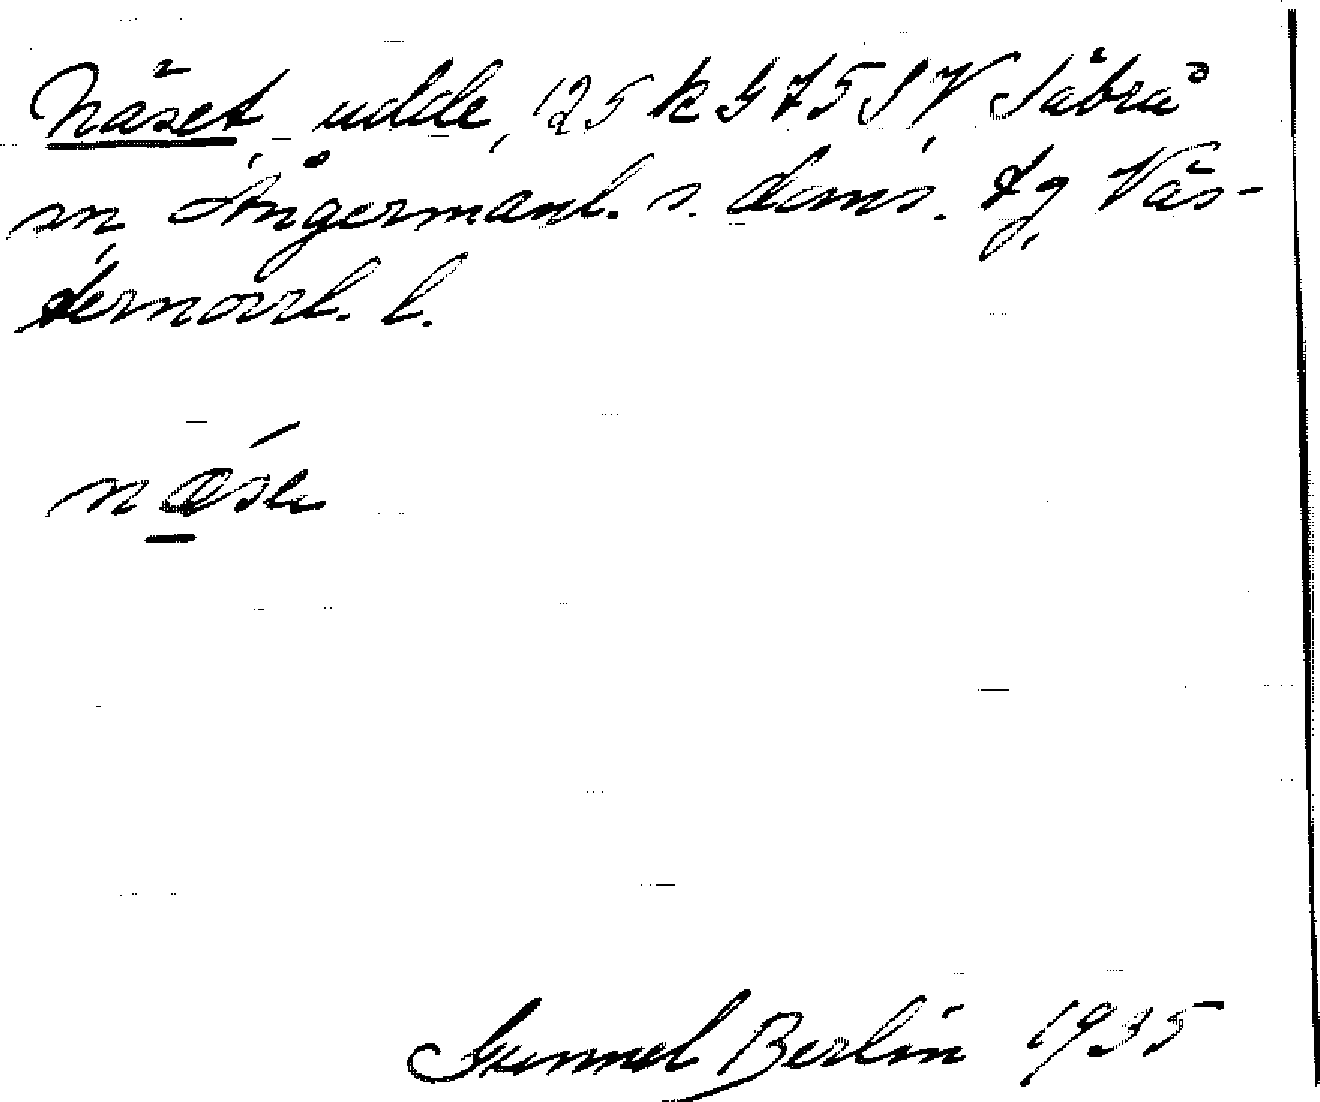 Näset, udde, 125 k G 75 S V, Säbrå
sn Ångermanl. s. doms. tg Väs-
ternorrl. l.
næse
Gunnel Berlin 1935